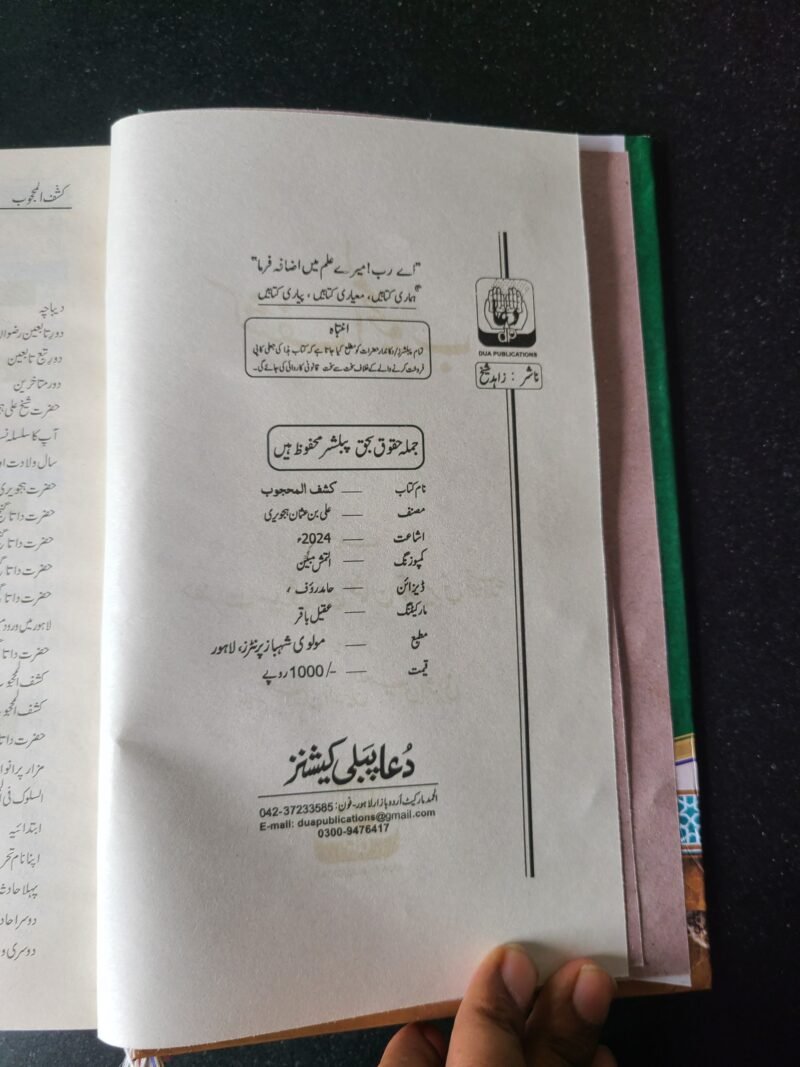 "اے رب! میرے علم میں اضافہ فرما"
"ہماری کتابیں، معیاری کتابیں، پیاری کتابیں
انتباہ
تمام پبلشرز/دکاندار حضرات کو مطلع کیا جاتا ہے کہ کتاب ہذا کی جعلی کاپی
فروخت کرنے والے کے خلاف سخت سے سخت قانونی کارروائی کی جائے گی۔
دعا
dp
DUA PUBLICATIONS
ناشر : زاہد شیخ
جملہ حقوق بحق پبلشر محفوظ ہیں
نام کتاب — کشف المحجوب
مصنف — علی بن عثمان ہجویری
اشاعت — 2024ء
کمپوزنگ — التمش مبین
ڈیزائن — حامد رؤف ،
مارکیٹنگ — عقیل باقر
مطبع — مولوی شہباز پرنٹرز، لاہور
قیمت — 1000/- روپے
دُعا پبلی کیشنز
الحمد مارکیٹ اُردو بازار لاہور۔ فون: 042-37233585
E-mail: duapublications@gmail.com
0300-9476417
کشف المحجوب
دیباچہ
دور تابعین رضوا
دور تبع تابعین
دور متاخرین
حضرت شیخ علی ہ
آپ کا سلسلہ نس
سال ولادت او
حضرت ہجویری
حضرت داتا گنج
حضرت داتا گنج
حضرت داتا گ
حضرت داتا گ
لاہور میں ورود م
حضرت داتا گ
کشف المحجوب
کشف المحجو
حضرت داتا
مزار پر انوا
السلوک فی ا
ابتدائیہ
اپنا نام تحر
پہلا حادث
دوسرا حاد
دوسری و